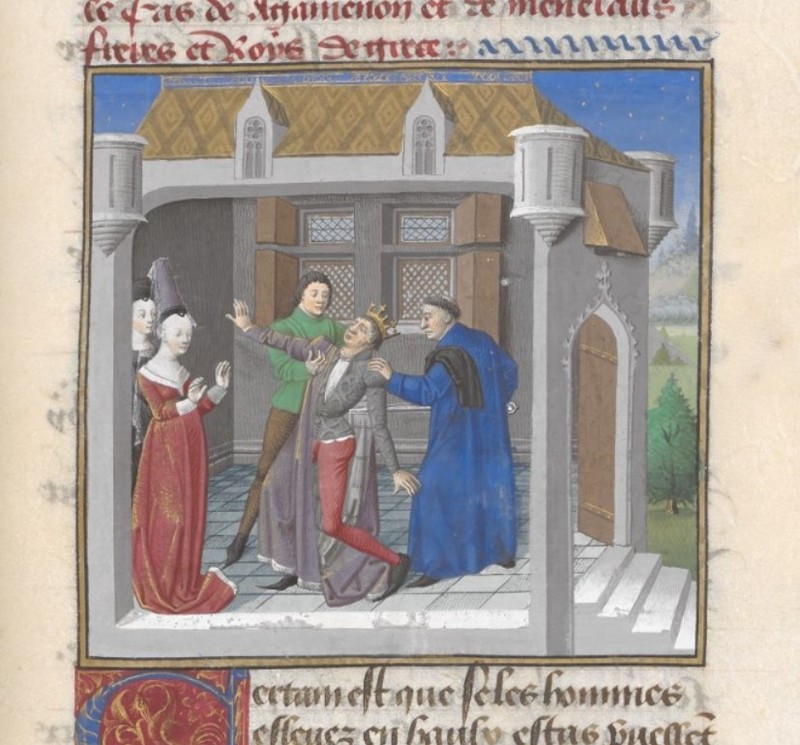 le cas de Agamenon et de menelaus
freres et Roys de grece
Certain est que se les hommes
esleuez en haulx estas pussent